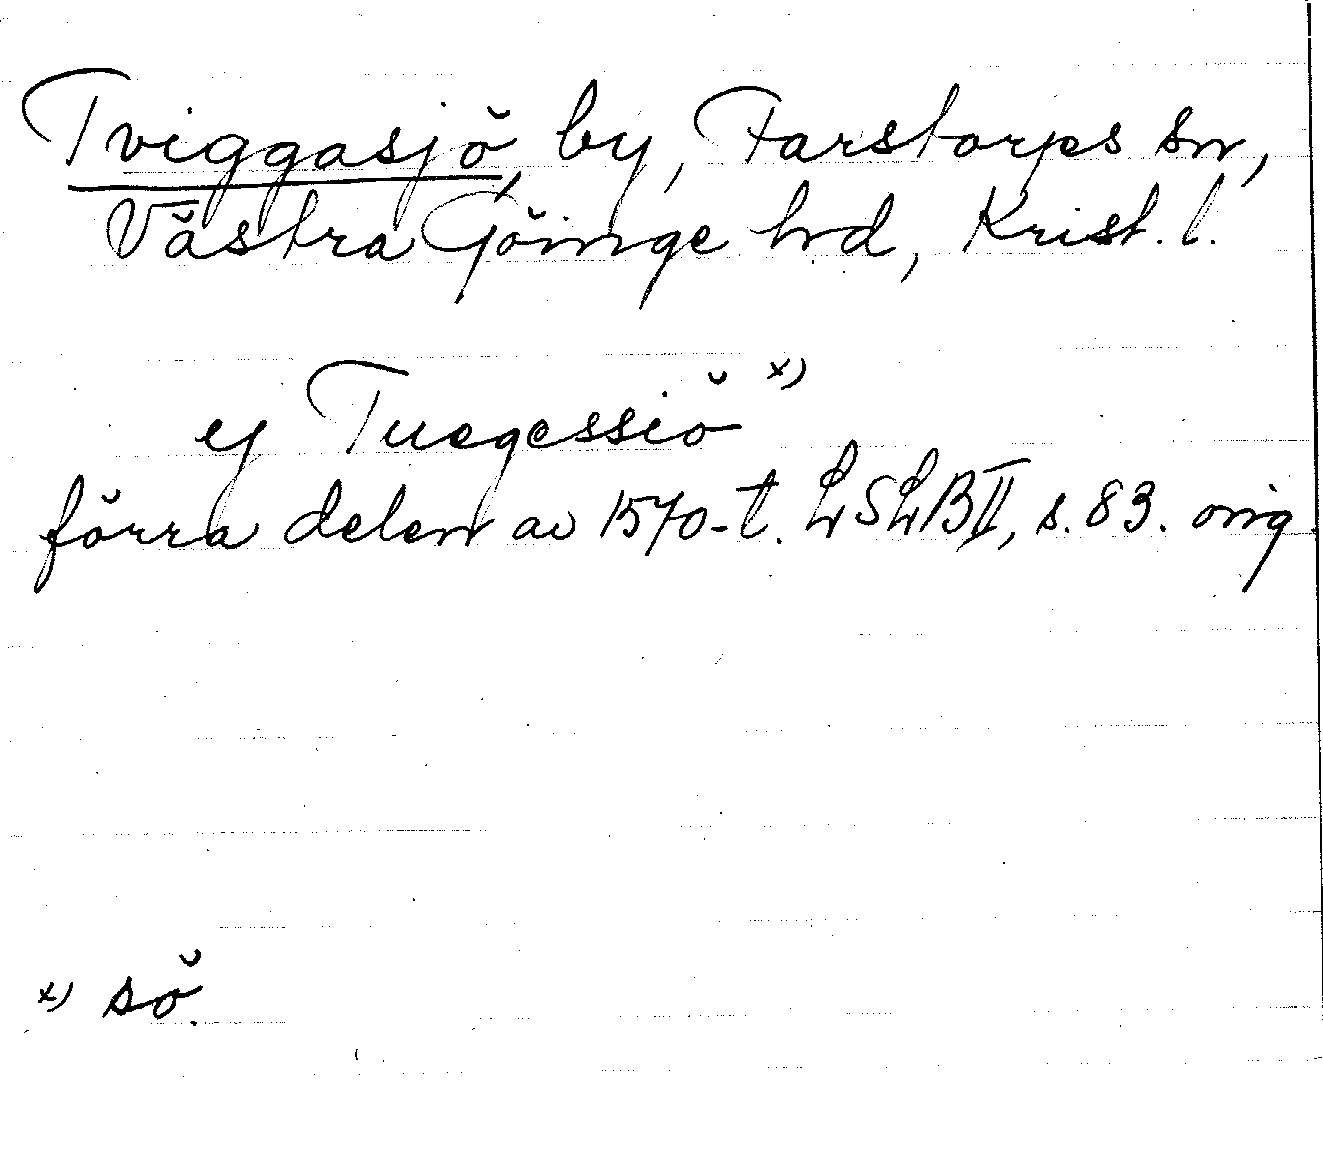 Tviggasjö, by, Farstorps sn,
Västra Göinge hd, Krist. l.
ey Tuegessiö x)
förra delen av 1570-t. LSLB II, s. 83. orig.
x) sö.